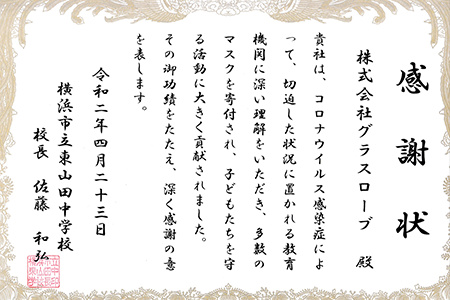 感謝状
株式会社グラスローブ 殿
貴社は、コロナウイルス感染症によ
って、切迫した状況に置かれる教育
機関に深い理解をいただき、多数の
マスクを寄付され、子どもたちを守
る活動に大きく貢献されました。
その御功績をたたえ、深く感謝の意
を表します。
令和二年四月二十三日
横浜市立東山田中学校
校長 佐藤 和弘